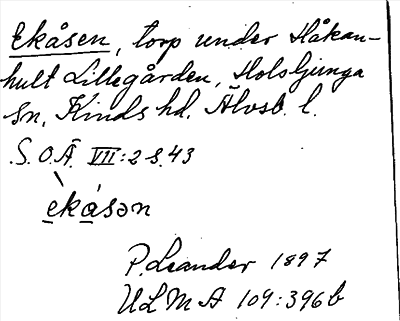 Ekåsen, torp under Håkan-
hult Lillegården, Holsljunga
Sn, Kinds hd. Älvsb. l.
S.O.Ä. VII:2 S.43
èkásən
P. Leander 1897
ULMA 109:396b